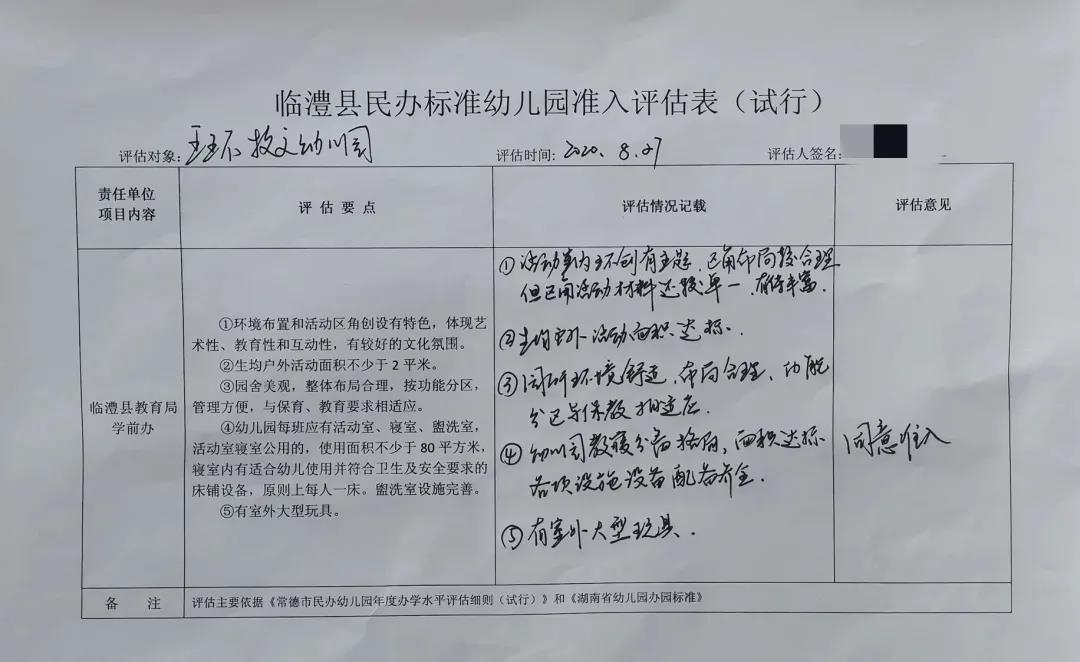 临澧县民办标准幼儿园准入评估表（试行）
评估对象: 幼儿园 评估时间: 2020.8.27 评估人签名:
责任单位
项目内容
评 估 要 点
评估情况记载
评估意见
临澧县教育局
学前办
①环境布置和活动区角创设有特色，体现艺
术性、教育性和互动性，有较好的文化氛围。
②生均户外活动面积不少于 2 平米。
③园舍美观，整体布局合理，按功能分区，
管理方便，与保育、教育要求相适应。
④幼儿园每班应有活动室、寝室、盥洗室，
活动室寝室公用的，使用面积不少于 80 平方米，
寝室内有适合幼儿使用并符合卫生及安全要求的
床铺设备，原则上每人一床。盥洗室设施完善。
⑤有室外大型玩具。
①活动室内环创有主题，区角布局较合理
但区角活动材料还较单一，有待丰富.
②生均室外活动面积达标.
③园所环境舒适，布局合理、功能
分区与保教相适应.
④幼儿园教寝分 面积达标
各项设施设备配备齐全.
⑤有室外大型玩具.
同意准入
备 注
评估主要依据《常德市民办幼儿园年度办学水平评估细则（试行）》和《湖南省幼儿园办园标准》